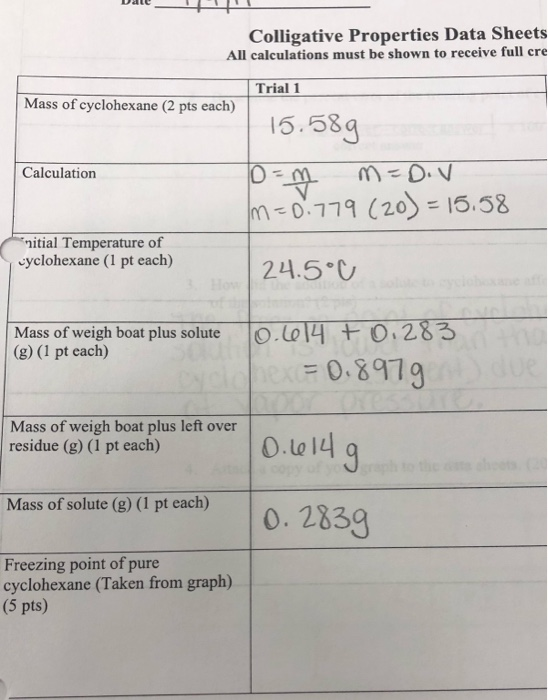 Date
Colligative Properties Data Sheets
All calculations must be shown to receive full cre
Trial 1
Mass of cyclohexane (2 pts each)
15.58g
Calculation
D = m/V m = D.V
m = 0.779 (20) = 15.58
nitial Temperature of
cyclohexane (1 pt each)
24.5°C
Mass of weigh boat plus solute
(g) (1 pt each)
0.614 + 0.283
= 0.897g
Mass of weigh boat plus left over
residue (g) (1 pt each)
0.614 g
Mass of solute (g) (1 pt each)
0.283g
Freezing point of pure
cyclohexane (Taken from graph)
(5 pts)